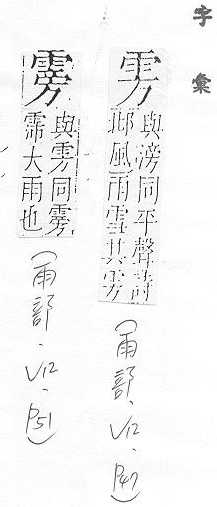 字彙
雱
與滂同平聲詩
邶風雨雪其雱
(雨部、V12、P47)
䨦
與雱同䨦
霈大雨也
(雨部、V12、P51)